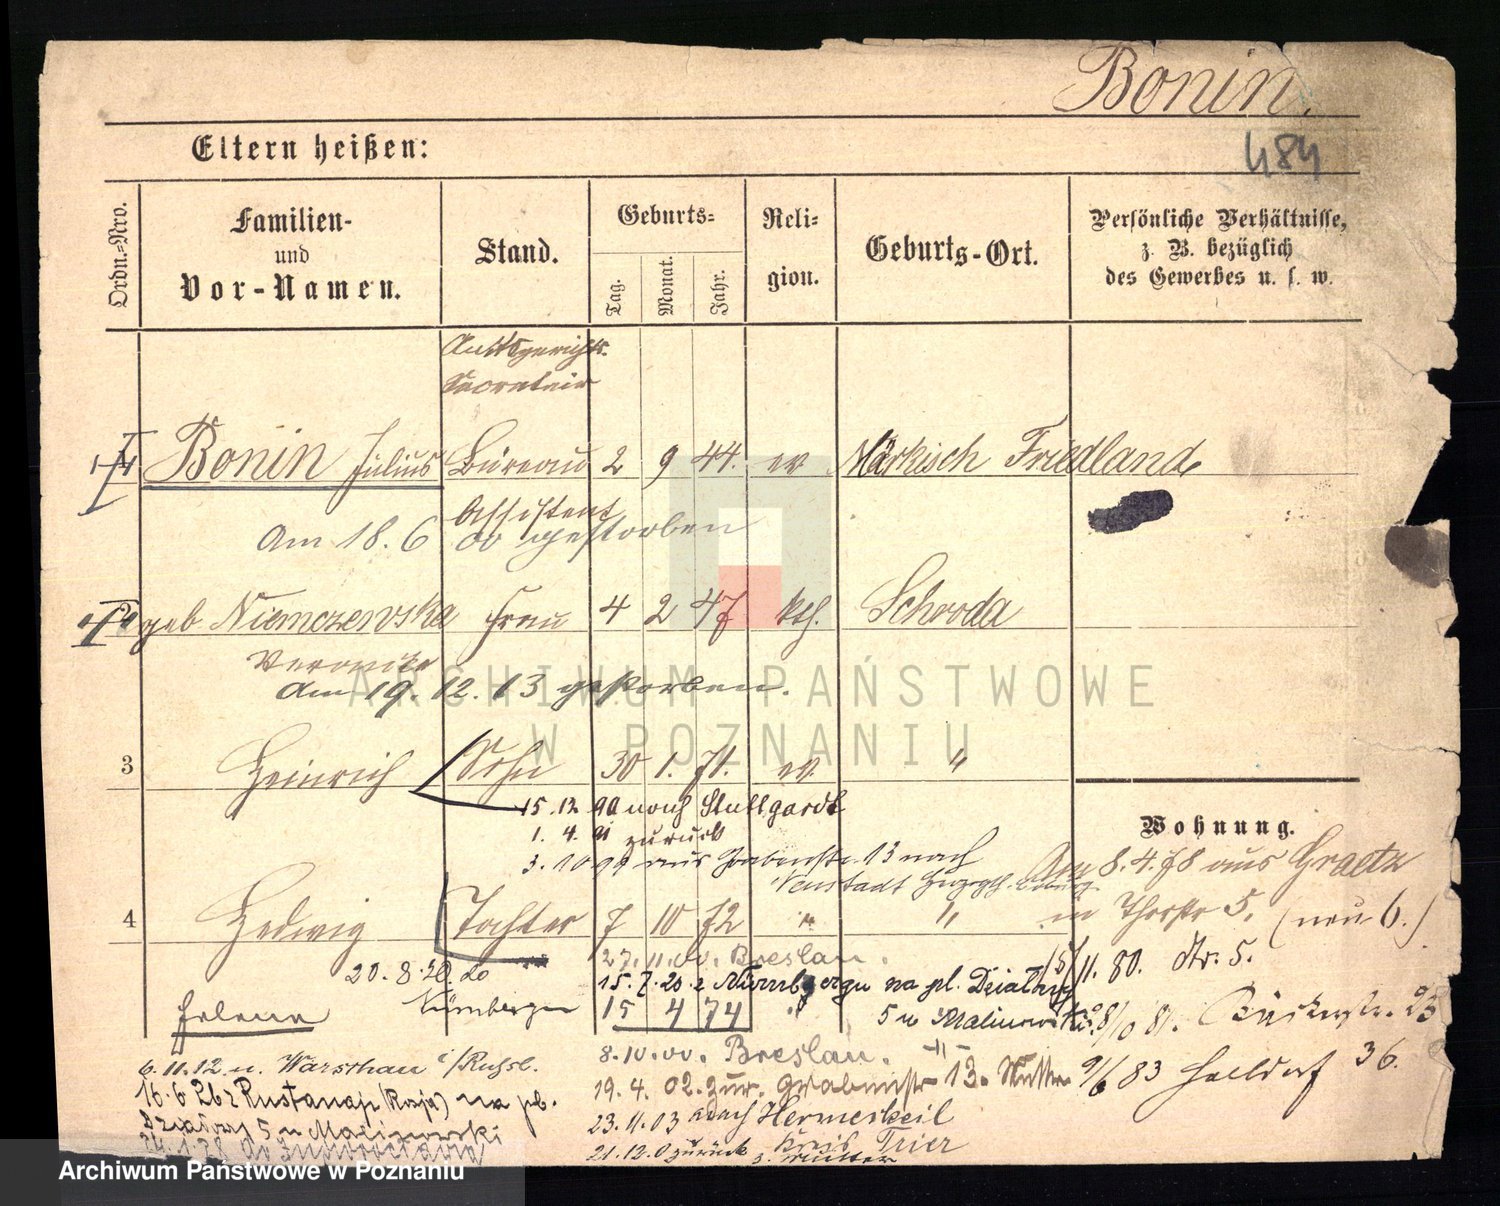 Bonin.
484
Eltern heißen:
Ordn.=Nro.
Familien-
und
Vor-Namen.
Stand.
Geburts=
Tag.
Monat.
Jahr.
Reli=
gion.
Geburts-Ort.
Persönliche Verhältnisse,
z. B. bezüglich
des Gewerbes u. s. w.
Amtsgerichts.
Secretair
1 Bonin Julius Büreau 2 9 44. ev Märkisch Friedland
Assistent
Am 18. 6 00 gestorben
2 geb Niemczewska Frau 4 2 47 kth. Schroda
Veronika
am 19. 12. 13 gestorben.
3 Heinrich Sohn 30 1. 71. ev. "
15. 12 90 nach Stuttgardt
1. 4. 91 zurück
3. 10 99 aus 13 nach
Neustadt
Wohnung.
Am 8. 4. 78 aus Graetz
in Thorstr 5. (neu 6.)
4 Hedwig Tochter 7 10 72 " "
27. 11. 00. Breslau.
15/11. 80. Str. 5.
20. 8. 20
Nürnbergu
15. 7. 20 z Nürnbergu na pl. Działowy
5 u Malinowski
Helena 15 4 74 "
28/10 81. Bäckerstr. 23
8. 10. 00. Breslau. -"-
6. 11. 12 n. Warschau i/Russl.
19. 4. 02. zur. Grabenstr 13. Mutter
9/6 83 Halldorf 36.
16. 6 26 z Kustanaj (Rosja) na pl.
Działowy 5 u Malinowski
23. 11. 03 nach Hermeskeil
Kreis Trier
24. 1. 28 do Inowrocławia
21. 12. 0 zurück z. Mutter
ARCHIWUM PAŃSTWOWE
W POZNANIU
Archiwum Państwowe w Poznaniu